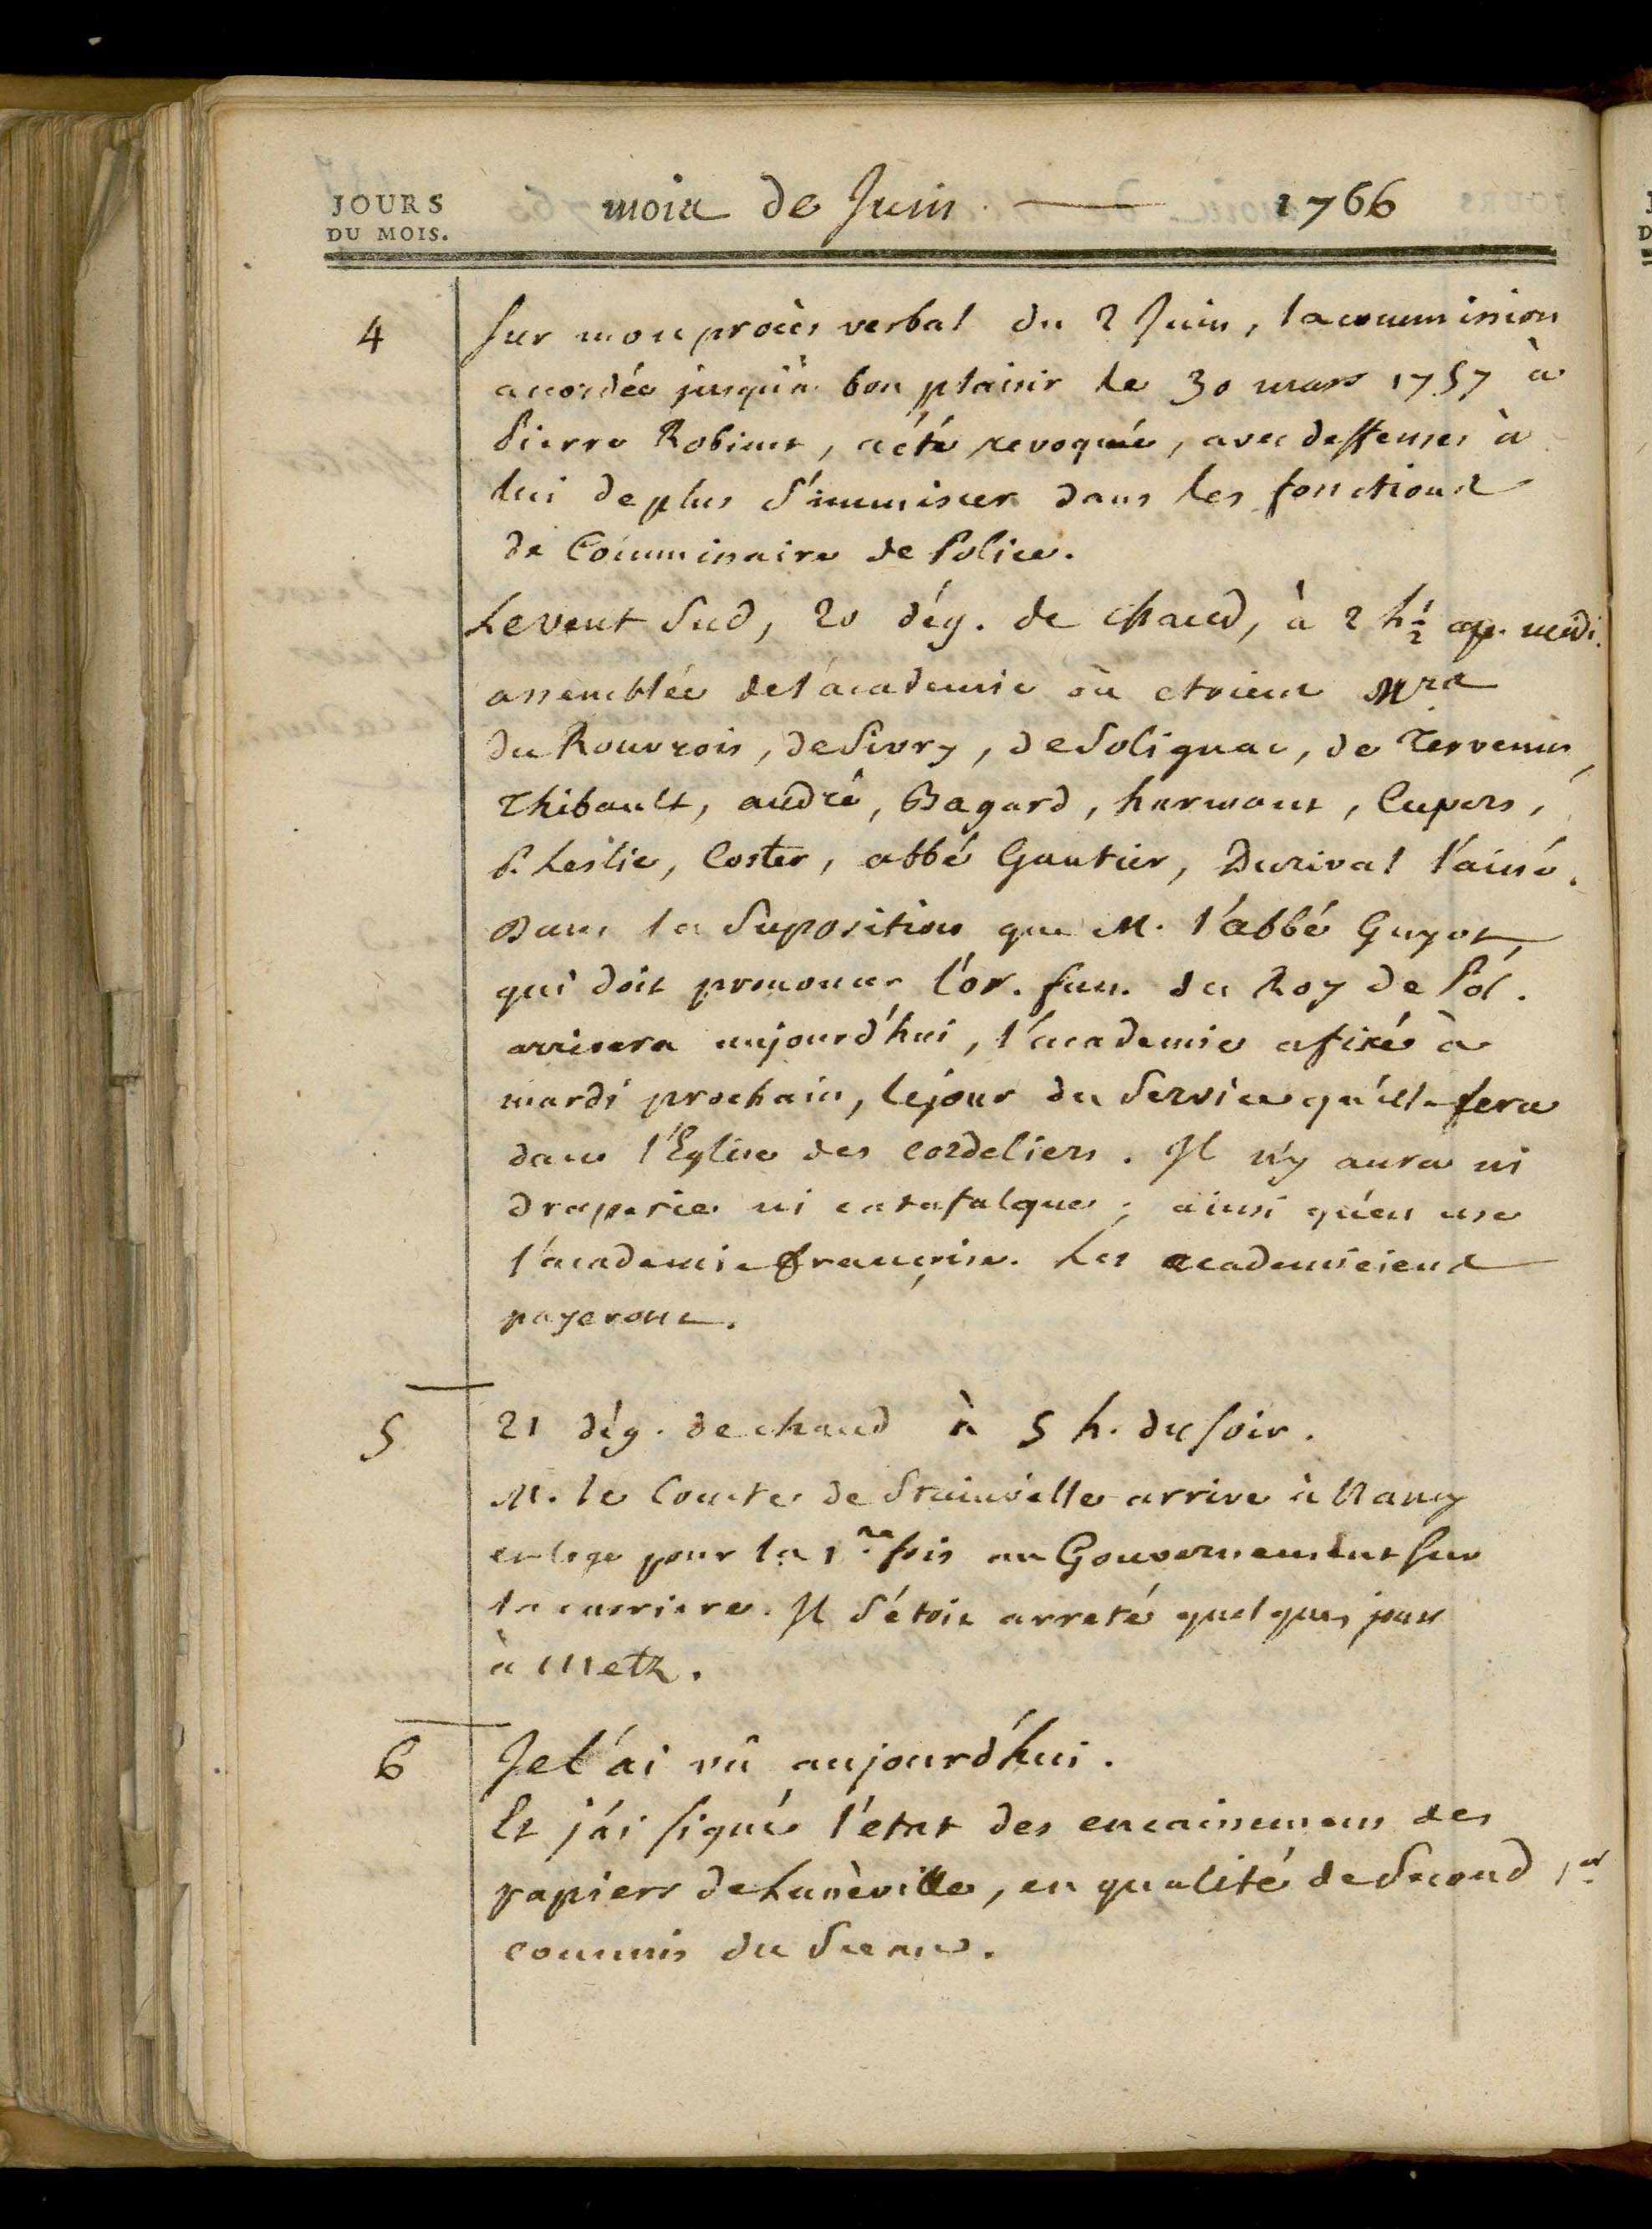 JOURS
DU MOIS.
mois de Juin — 1766
4
Sur mon procès verbal du 2 Juin, la commission
accordée jusqu'à bon plaisir le 30 mars 1757 à
Pierre Robinet, a été revoquée, avec deffenses à
lui de plus s'immiscer dans les fonctions
de Commissaire de Police.
Le vent Sud, 20 dég. de chaud, à 2 h ½ ap. midi.
assemblée de l'académie où etoient Mrs
du Rouvrois, de Sivry, de Solignac, de Tervenus,
Thibault, andré, Bagard, harmant, Cupers,
P. Leslie, Coster, abbé Gautier, Durival l'ainé.
Dans la Suposition que M. l'abbé Guyot,
qui doit prononcer l'or. fun. du Roy de Pol.
arrivera aujourd'hui, l'academie a fixé à
mardi prochain, le jour du Service qu'elle fera
dans l'Eglise des cordeliers. Il n'y aura ni
draperie ni catafalque; ainsi qu'en use
l'academie françoise. Les academiciens
payeront.
5
21 dég. de chaud à 5 h. du soir.
M. le Comte de Stainville arrive à Nancy
et loge pour la 1re fois au Gouvernement sur
la carriere. Il s'étoit arreté quelques jours
à Metz.
6
Je l'ai vû aujourd'hui.
Et j'ai signé l'etat des encaissemens des
papiers de Lunéville, en qualité de Second 1er
commis du Sceau.